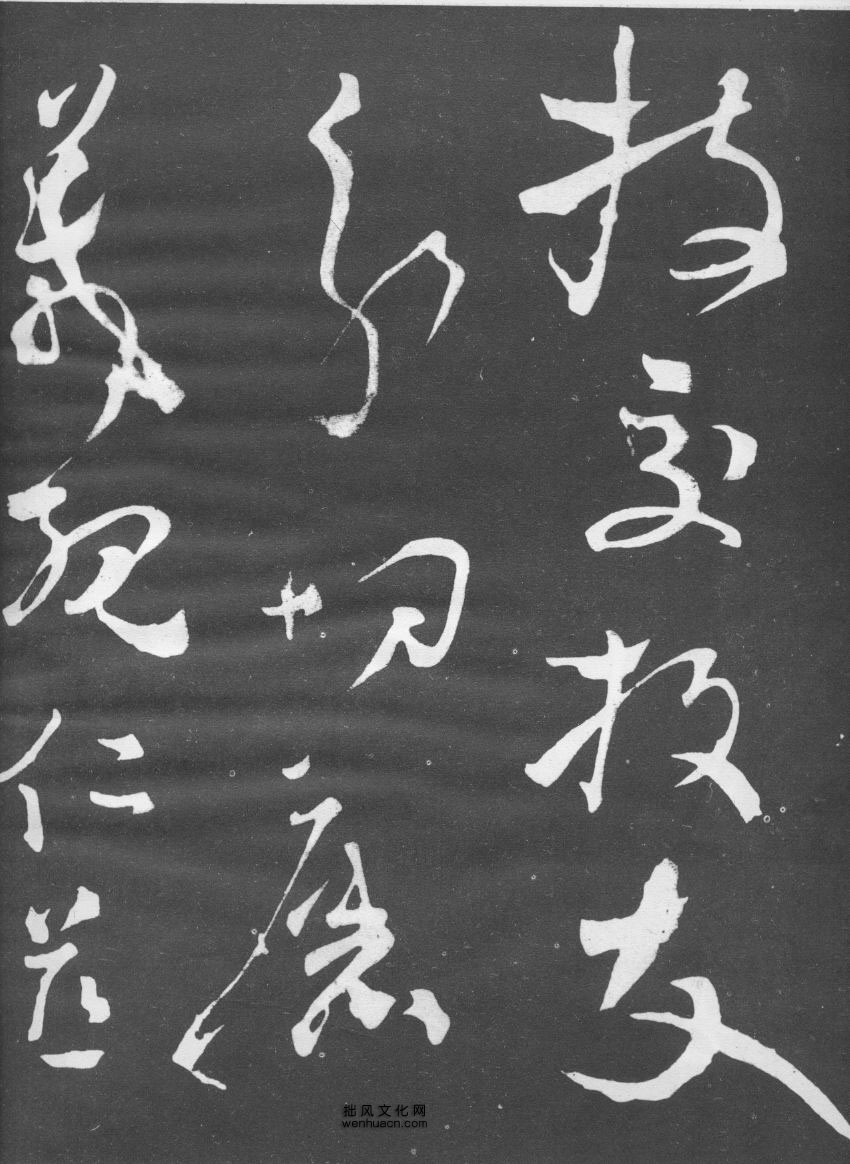 枝交投友
分切磨
箴規仁慈
拙风文化网
wenhuacn.com